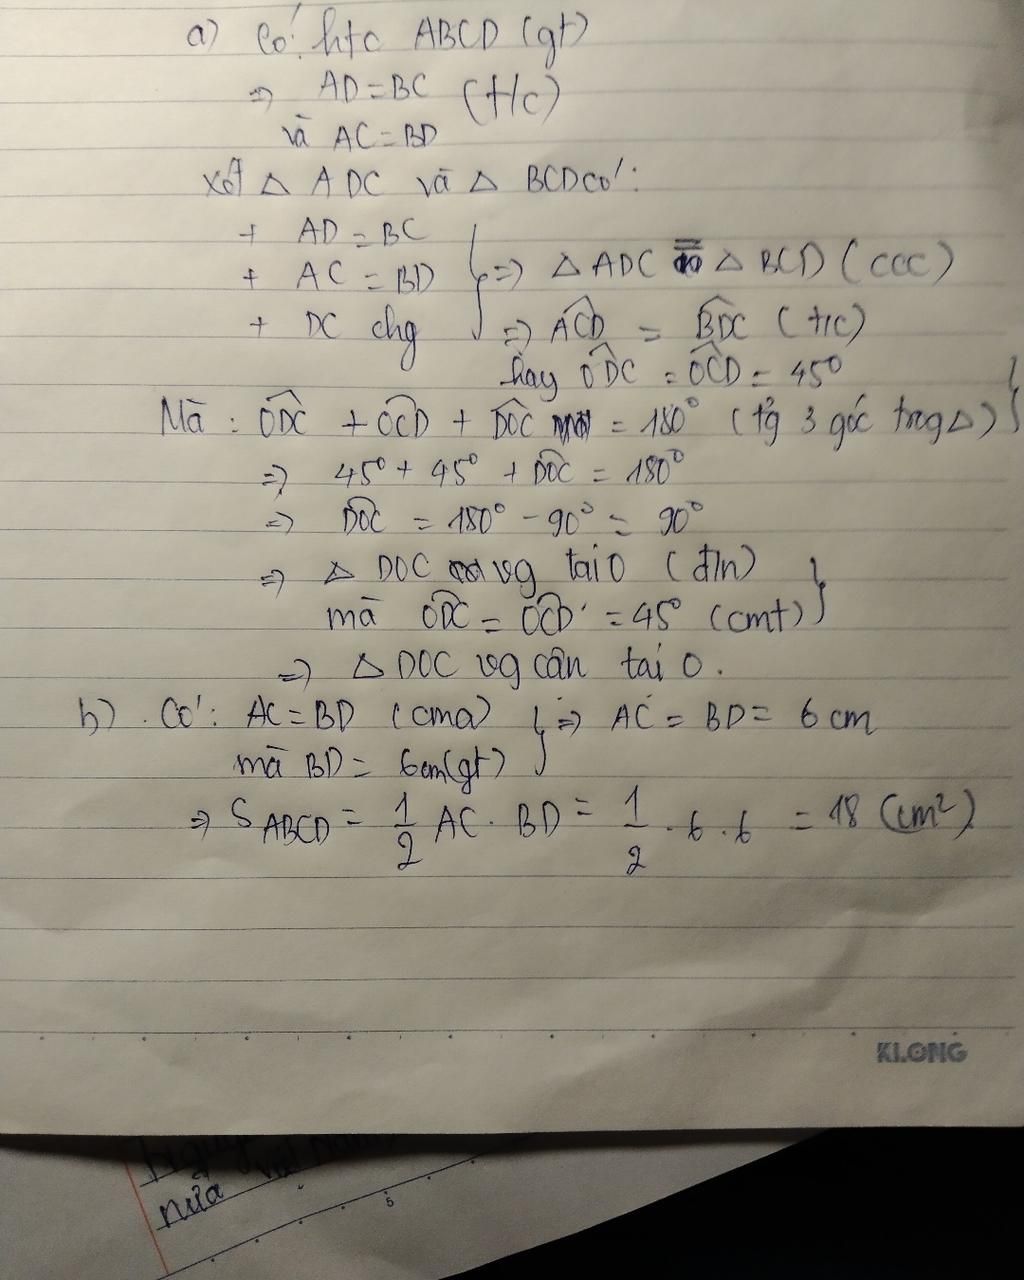 a) Có htc ABCD (gt)
=> AD = BC (t/c)
và AC = BD
xét △ ADC và △ BCD có:
+ AD = BC
+ AC = BD } => △ ADC = △ BCD (ccc)
+ DC chg => ACD = BDC (t/c)
hay ODC = OCD = 45°
Mà : ODC + OCD + DOC = 180° (tg 3 góc trog △) }
=> 45° + 45° + DOC = 180°
=> DOC = 180° - 90° = 90°
=> △ DOC vg tại O (đ/n)
mà ODC = OCD = 45° (cmt) }
=> △ DOC vg cân tại O.
b) . Có: AC = BD (cma) } => AC = BD = 6 cm
mà BD = 6cm (gt)
=> S ABCD = 1/2 AC . BD = 1/2 . 6 . 6 = 18 (cm²)
KLONG
nửa
5